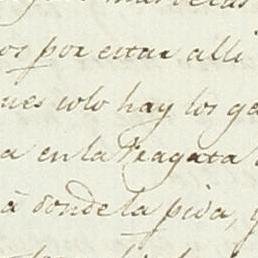 os por estar alli
ues solo hay los ge
a en la Fragata
à donde la pida, y